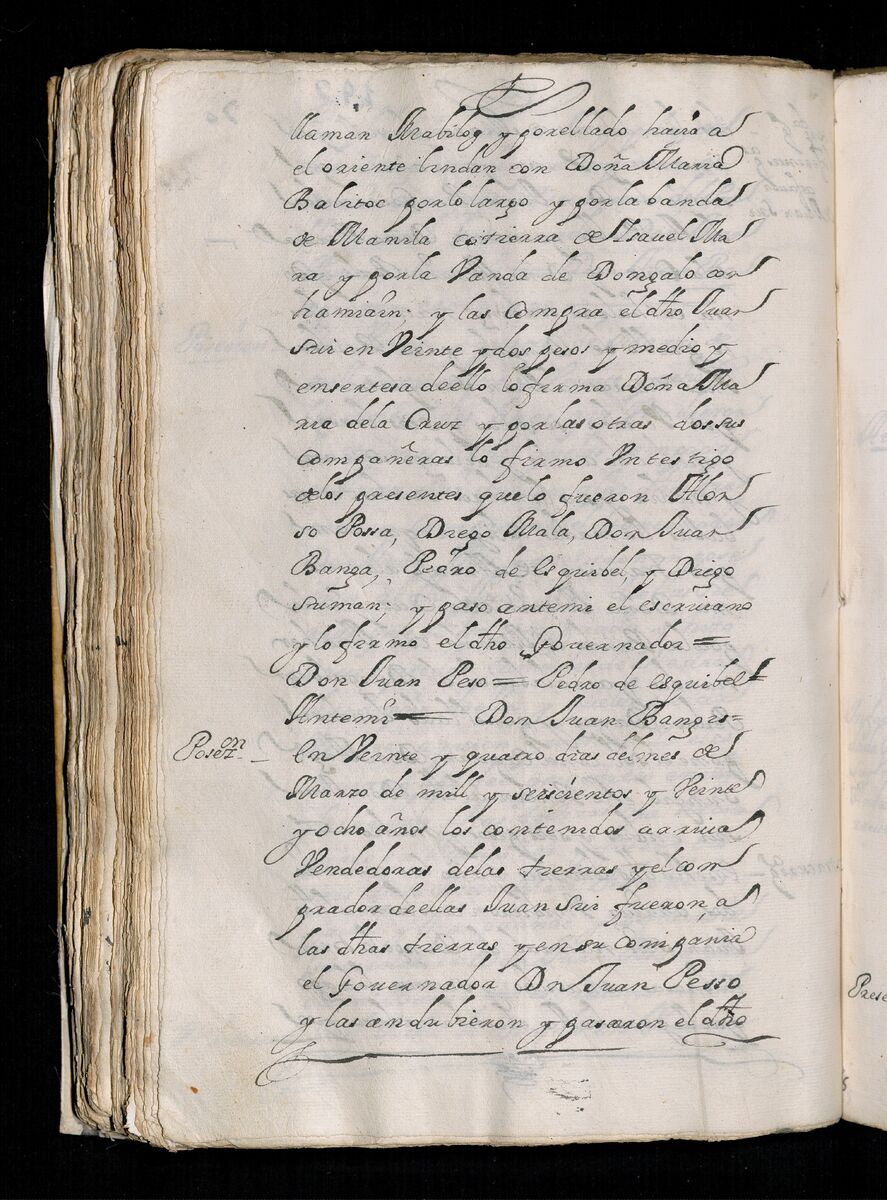 llaman Mabilog y por ellado hacia a
el oriente lindan con Doña Maria
Balitoc por lo largo y por la banda
de Manila co tierra de Isavel Ma
ra y por la Vanda de Dongalo con
y las Compra el dho Juan
Sui en Veinte y dos pesos y medio y
ensertesa deello lo firma Doña Ma
ria dela Cruz y por las otras dos sus
Compañeras lo firmo Vn testigo
delos presentes que lo fueron Alon
so Possa, Diego Mala, Don Juan
Banga, Pedro de esquibel, y Diego
Sumán; y paso antemi el escrivano
y lo firmo el dho Governador =
Don Juan Peso = Pedro de esquibel =
Antemi = Don Juan Bangis =
Posezon – En Veinte y quatro dias del mes de
Marzo de mill y seiscientos y Veinte
y ocho años los contenidos arriva
Vendedoras delas tierras y el com
prador deellas Juan Sui fueron, a
las dhas tierras y en su compania
el Governador Dn Juan Pesso
y las andubieron y pasaron el dho
Prese